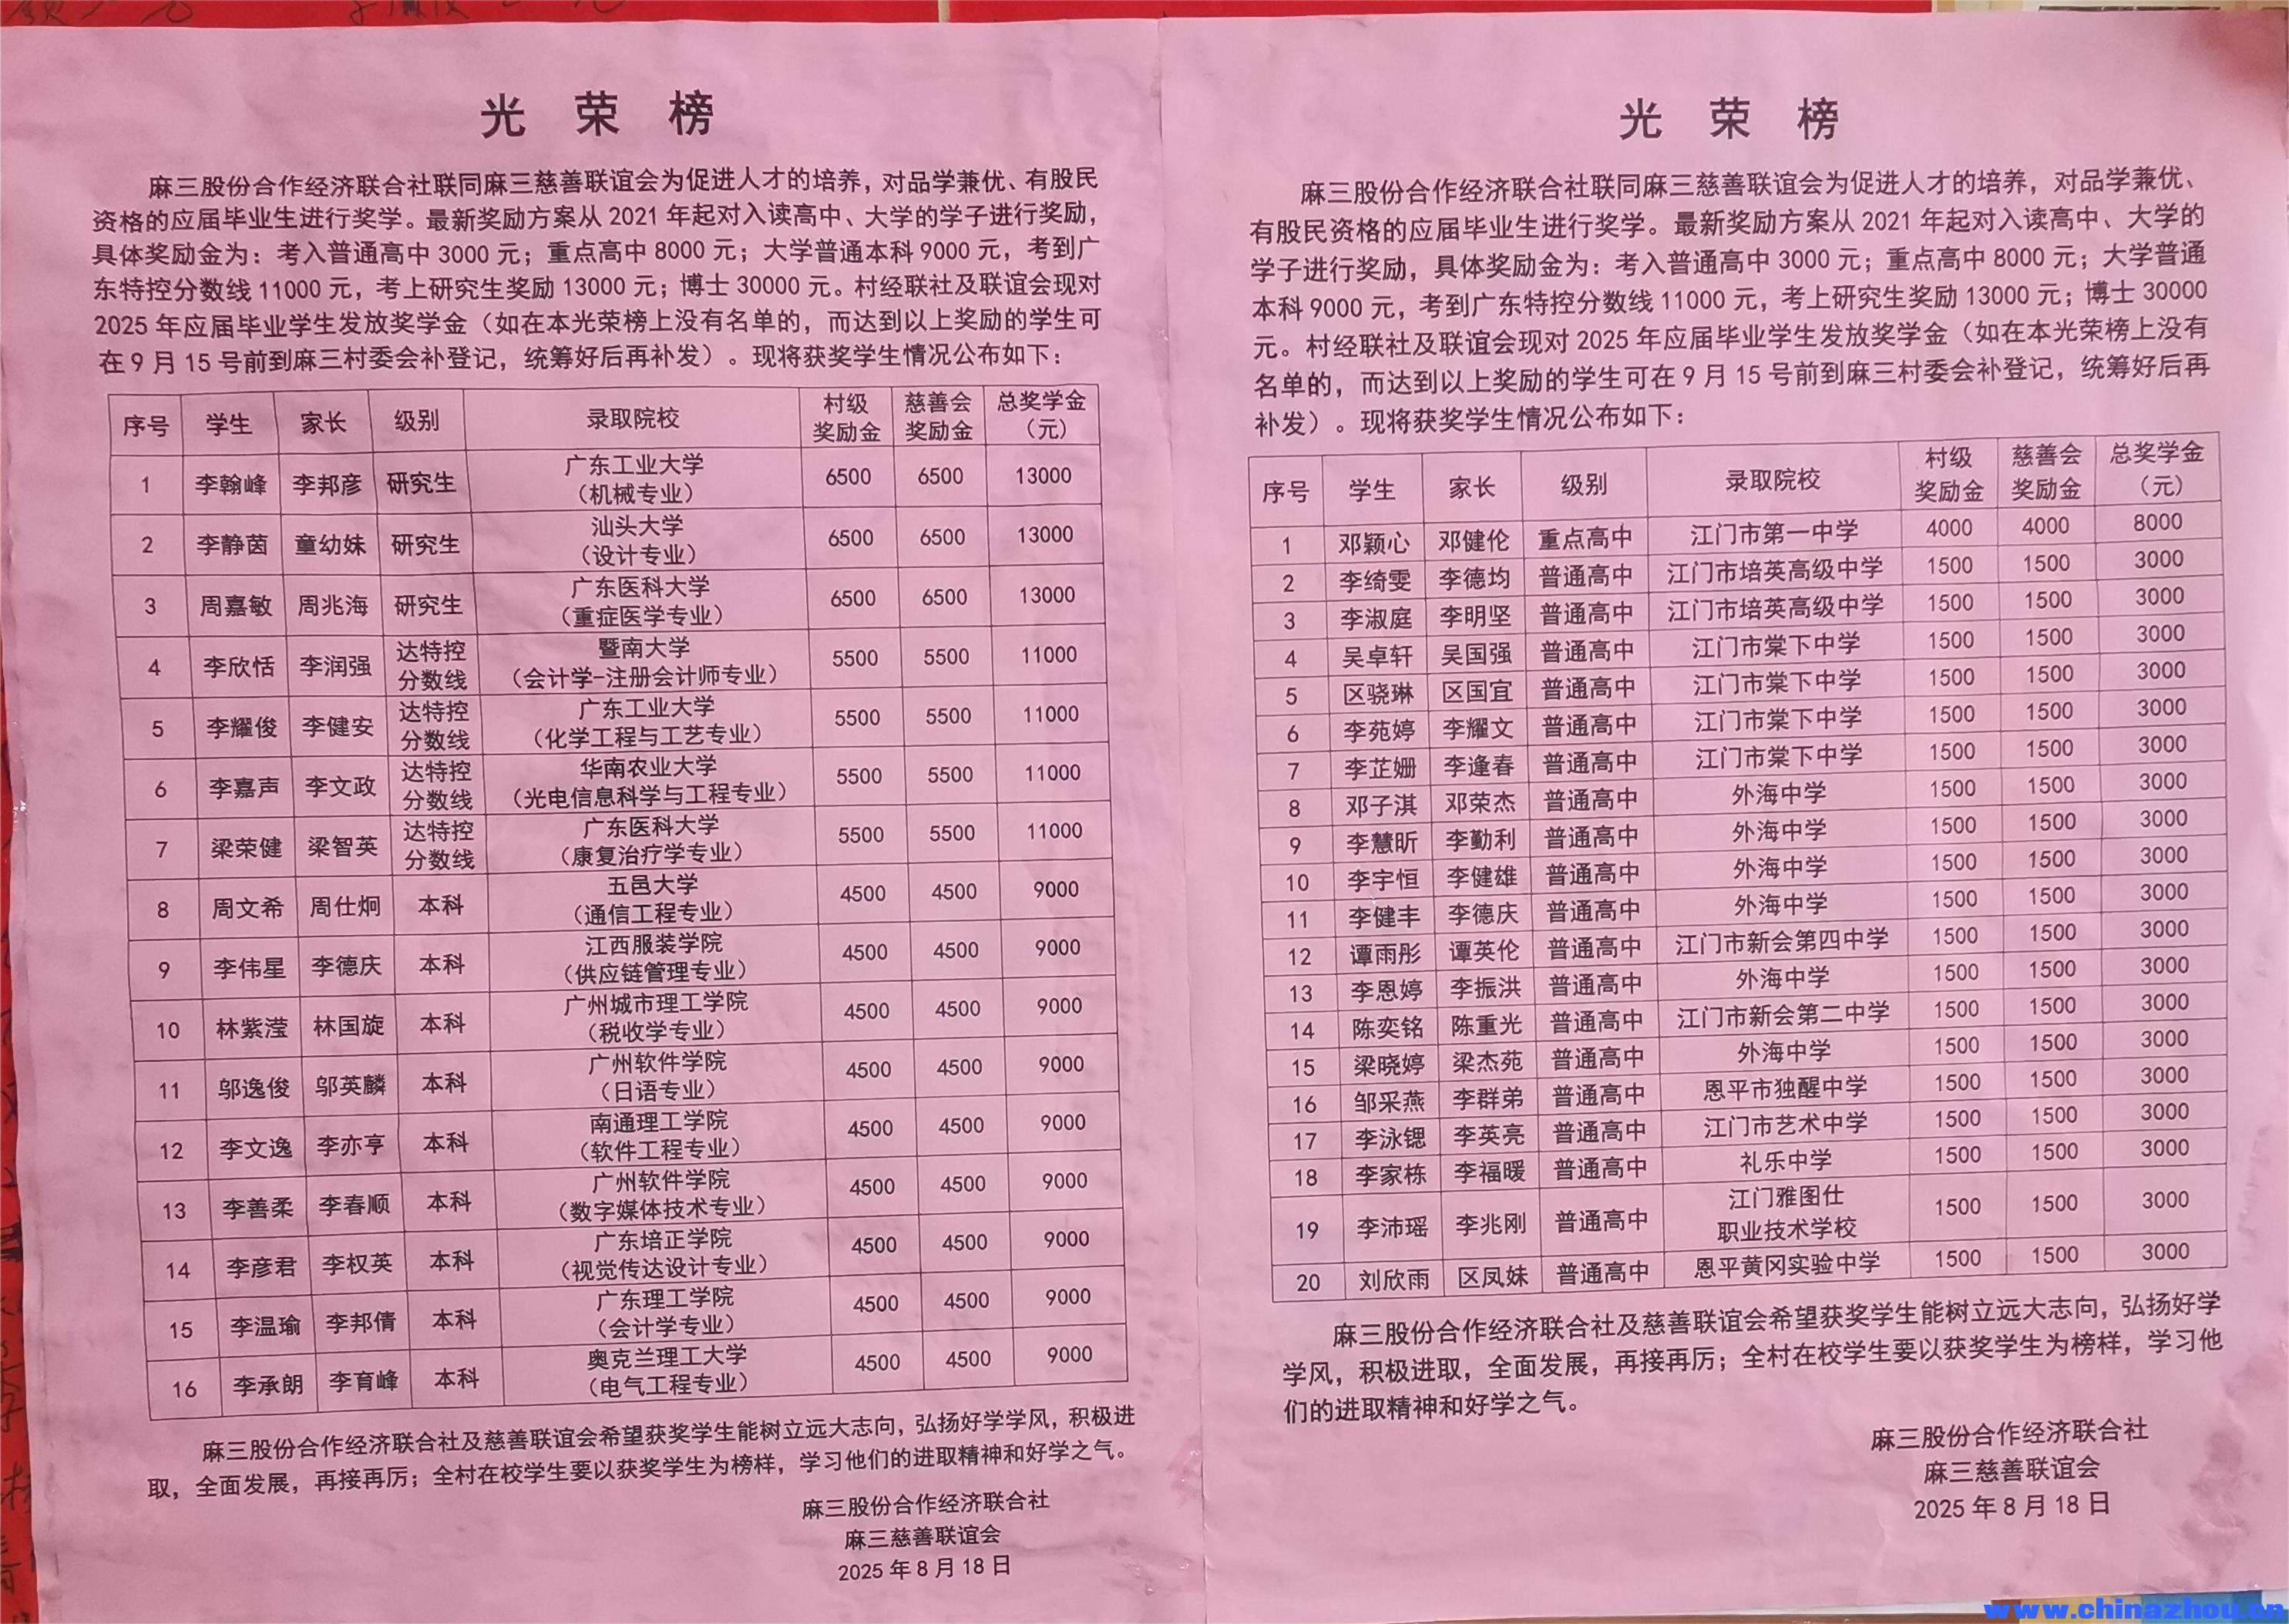 光 荣 榜
麻三股份合作经济联合社联同麻三慈善联谊会为促进人才的培养，对品学兼优、有股民
资格的应届毕业生进行奖学。最新奖励方案从 2021 年起对入读高中、大学的学子进行奖励，
具体奖励金为：考入普通高中 3000 元；重点高中 8000 元；大学普通本科 9000 元，考到广
东特控分数线 11000 元，考上研究生奖励 13000 元；博士 30000 元。村经联社及联谊会现对
2025 年应届毕业学生发放奖学金（如在本光荣榜上没有名单的，而达到以上奖励的学生可
在 9 月 15 号前到麻三村委会补登记，统筹好后再补发）。现将获奖学生情况公布如下：
序号 学生 家长 级别 录取院校 村级奖励金 慈善会奖励金 总奖学金（元）
1 李翰峰 李邦彦 研究生 广东工业大学（机械专业） 6500 6500 13000
2 李静茵 童幼妹 研究生 汕头大学（设计专业） 6500 6500 13000
3 周嘉敏 周兆海 研究生 广东医科大学（重症医学专业） 6500 6500 13000
4 李欣恬 李润强 达特控分数线 暨南大学（会计学-注册会计师专业） 5500 5500 11000
5 李耀俊 李健安 达特控分数线 广东工业大学（化学工程与工艺专业） 5500 5500 11000
6 李嘉声 李文政 达特控分数线 华南农业大学（光电信息科学与工程专业） 5500 5500 11000
7 梁荣健 梁智英 达特控分数线 广东医科大学（康复治疗学专业） 5500 5500 11000
8 周文希 周仕炯 本科 五邑大学（通信工程专业） 4500 4500 9000
9 李伟星 李德庆 本科 江西服装学院（供应链管理专业） 4500 4500 9000
10 林紫滢 林国旋 本科 广州城市理工学院（税收学专业） 4500 4500 9000
11 邬逸俊 邬英麟 本科 广州软件学院（日语专业） 4500 4500 9000
12 李文逸 李亦亨 本科 南通理工学院（软件工程专业） 4500 4500 9000
13 李善柔 李春顺 本科 广州软件学院（数字媒体技术专业） 4500 4500 9000
14 李彦君 李权英 本科 广东培正学院（视觉传达设计专业） 4500 4500 9000
15 李温瑜 李邦倩 本科 广东理工学院（会计学专业） 4500 4500 9000
16 李承朗 李育峰 本科 奥克兰理工大学（电气工程专业） 4500 4500 9000
麻三股份合作经济联合社及慈善联谊会希望获奖学生能树立远大志向，弘扬好学学风，积极进
取，全面发展，再接再厉；全村在校学生要以获奖学生为榜样，学习他们的进取精神和好学之气。
麻三股份合作经济联合社
麻三慈善联谊会
2025 年 8 月 18 日
光 荣 榜
麻三股份合作经济联合社联同麻三慈善联谊会为促进人才的培养，对品学兼优、
有股民资格的应届毕业生进行奖学。最新奖励方案从 2021 年起对入读高中、大学的
学子进行奖励，具体奖励金为：考入普通高中 3000 元；重点高中 8000 元；大学普通
本科 9000 元，考到广东特控分数线 11000 元，考上研究生奖励 13000 元；博士 30000
元。村经联社及联谊会现对 2025 年应届毕业学生发放奖学金（如在本光荣榜上没有
名单的，而达到以上奖励的学生可在 9 月 15 号前到麻三村委会补登记，统筹好后再
补发）。现将获奖学生情况公布如下：
序号 学生 家长 级别 录取院校 村级奖励金 慈善会奖励金 总奖学金（元）
1 邓颖心 邓健伦 重点高中 江门市第一中学 4000 4000 8000
2 李绮雯 李德均 普通高中 江门市培英高级中学 1500 1500 3000
3 李淑庭 李明坚 普通高中 江门市培英高级中学 1500 1500 3000
4 吴卓轩 吴国强 普通高中 江门市棠下中学 1500 1500 3000
5 区骁琳 区国宜 普通高中 江门市棠下中学 1500 1500 3000
6 李苑婷 李耀文 普通高中 江门市棠下中学 1500 1500 3000
7 李芷姗 李逢春 普通高中 江门市棠下中学 1500 1500 3000
8 邓子淇 邓荣杰 普通高中 外海中学 1500 1500 3000
9 李慧昕 李勤利 普通高中 外海中学 1500 1500 3000
10 李宇恒 李健雄 普通高中 外海中学 1500 1500 3000
11 李健丰 李德庆 普通高中 外海中学 1500 1500 3000
12 谭雨彤 谭英伦 普通高中 江门市新会第四中学 1500 1500 3000
13 李恩婷 李振洪 普通高中 外海中学 1500 1500 3000
14 陈奕铭 陈重光 普通高中 江门市新会第二中学 1500 1500 3000
15 梁晓婷 梁杰苑 普通高中 外海中学 1500 1500 3000
16 邹采燕 李群弟 普通高中 恩平市独醒中学 1500 1500 3000
17 李泳锶 李英亮 普通高中 江门市艺术中学 1500 1500 3000
18 李家栋 李福暖 普通高中 礼乐中学 1500 1500 3000
19 李沛瑶 李兆刚 普通高中 江门雅图仕职业技术学校 1500 1500 3000
20 刘欣雨 区凤妹 普通高中 恩平黄冈实验中学 1500 1500 3000
麻三股份合作经济联合社及慈善联谊会希望获奖学生能树立远大志向，弘扬好学
学风，积极进取，全面发展，再接再厉；全村在校学生要以获奖学生为榜样，学习他
们的进取精神和好学之气。
麻三股份合作经济联合社
麻三慈善联谊会
2025 年 8 月 18 日
www.chinazhou.cn